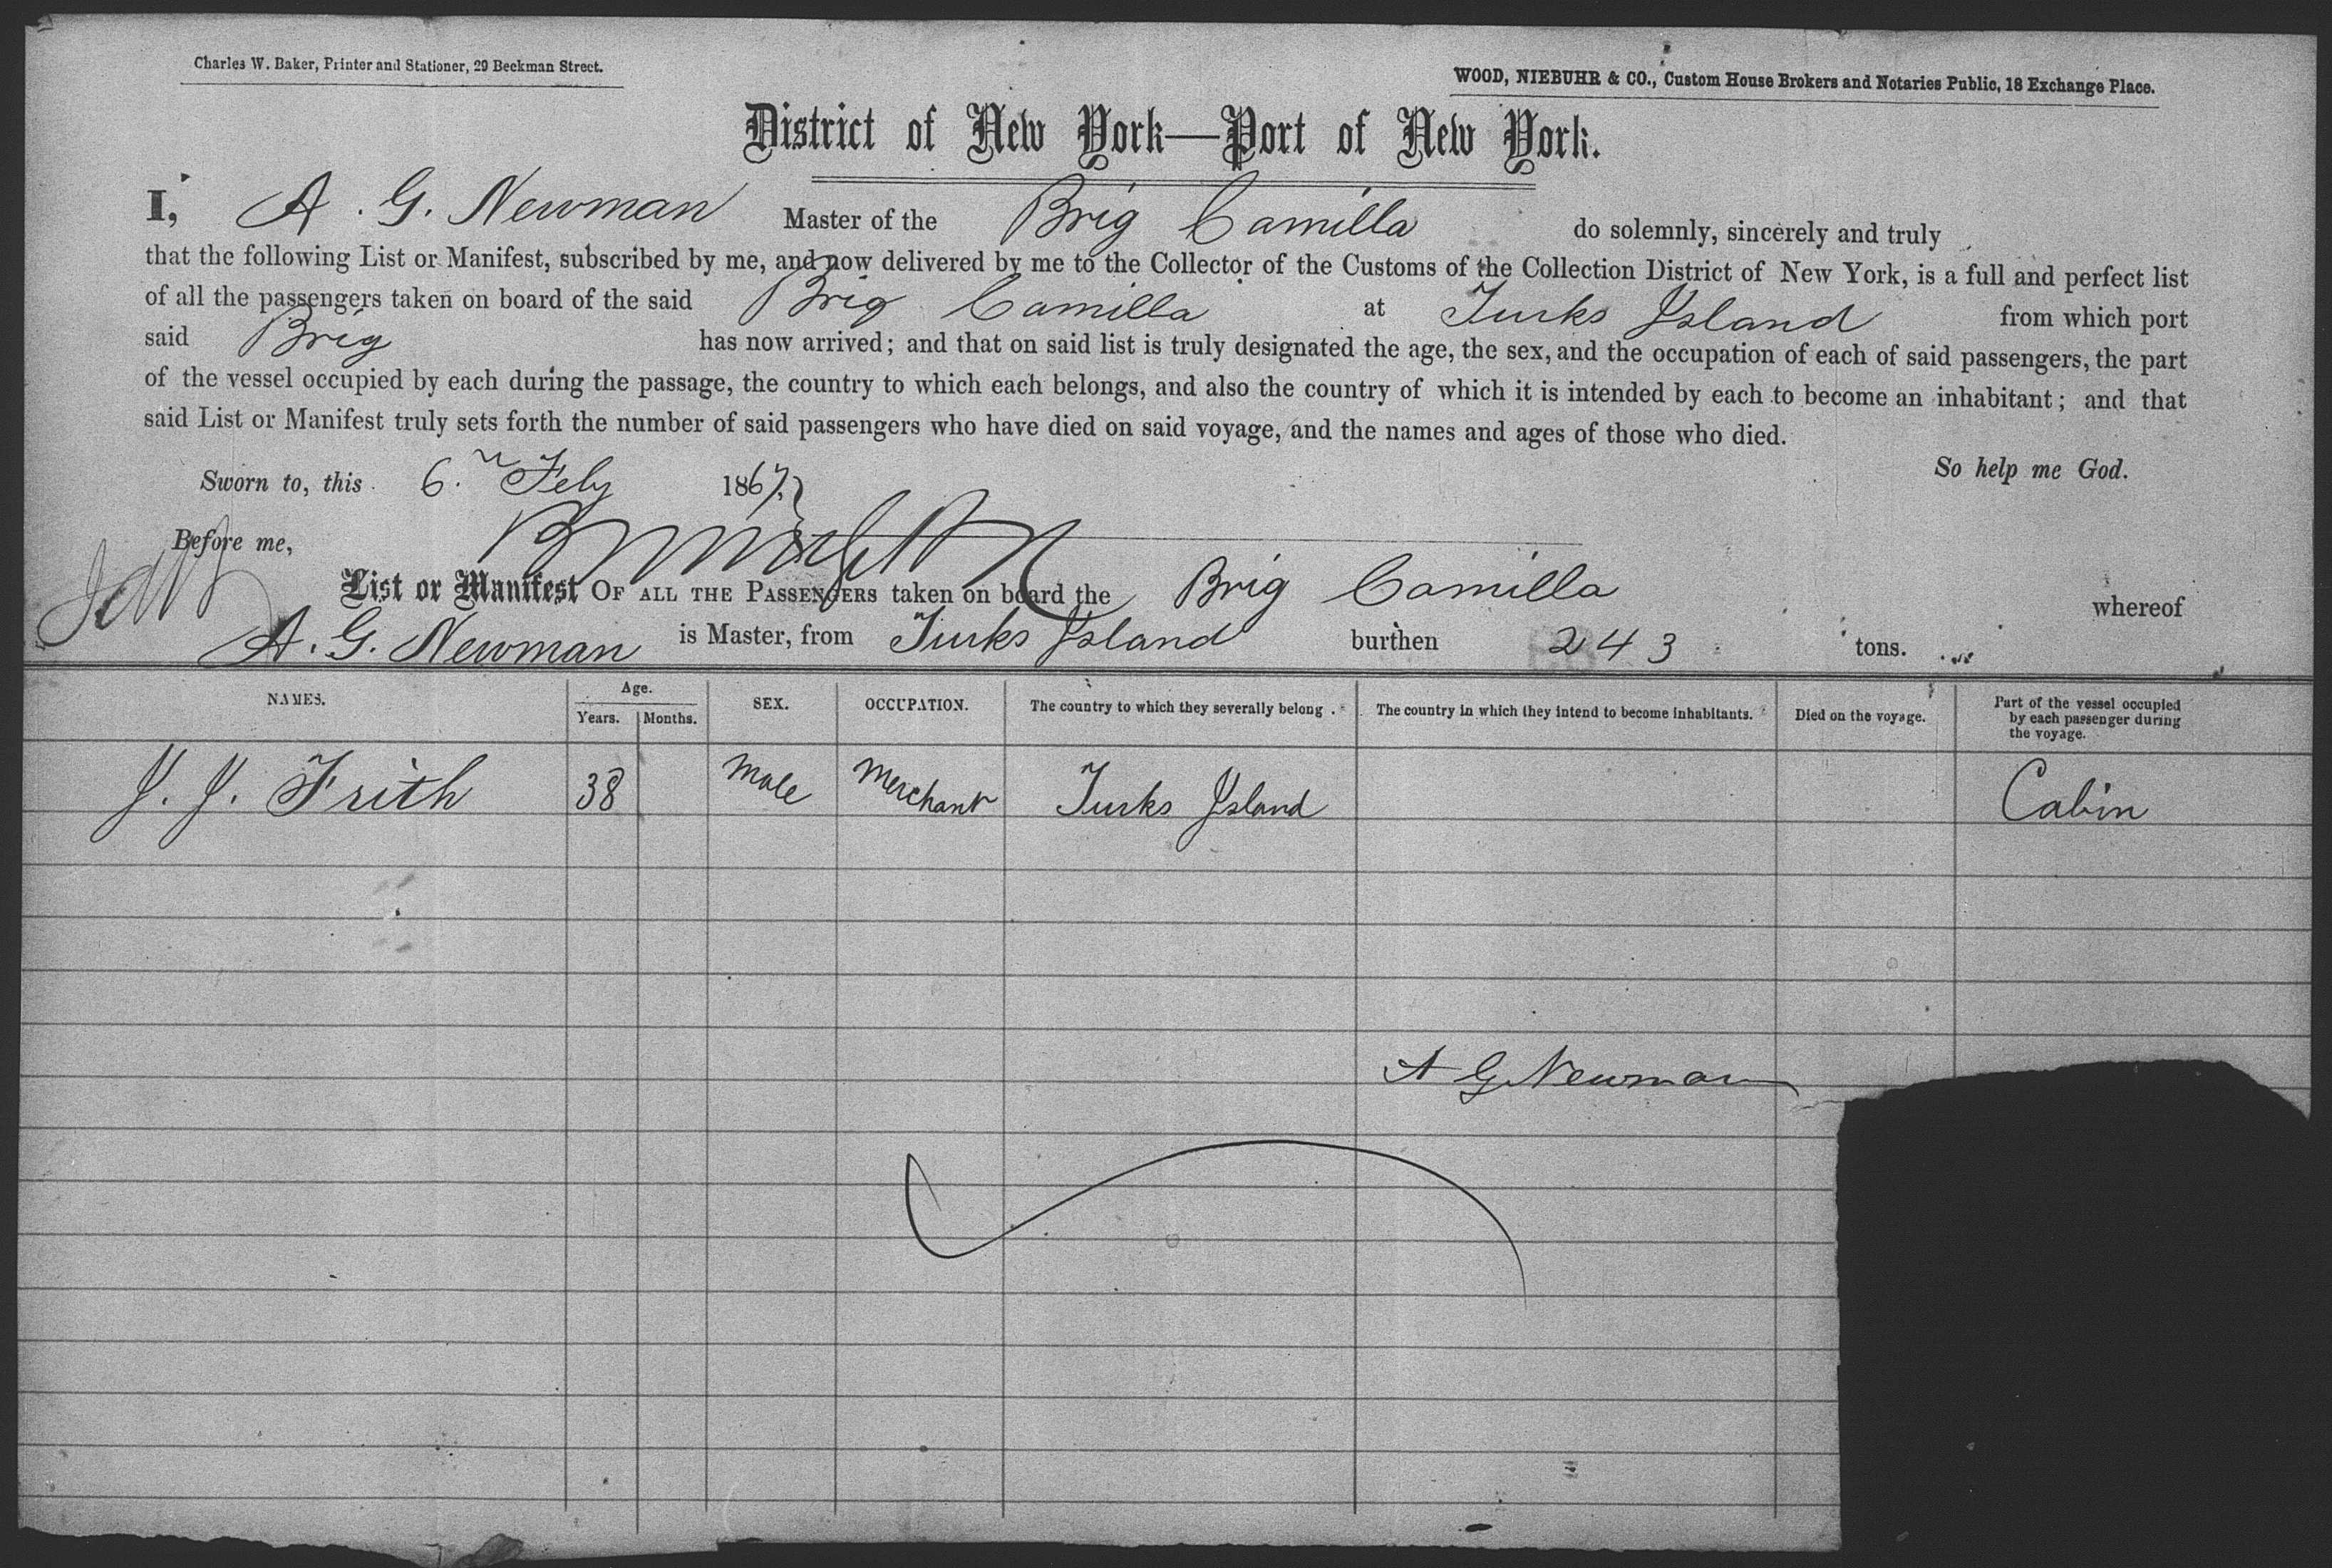 Charles W. Baker, Printer and Stationer, 29 Beekman Street.
WOOD, NIEBUHR & CO., Custom House Brokers and Notaries Public, 18 Exchange Place.
District of New York—Port of New York.
I, A. G. Newman Master of the Brig Camilla do solemnly, sincerely and truly
that the following List or Manifest, subscribed by me, and now delivered by me to the Collector of the Customs of the Collection District of New York, is a full and perfect list
of all the passengers taken on board of the said Brig Camilla at Turks Island from which port
said Brig has now arrived; and that on said list is truly designated the age, the sex, and the occupation of each of said passengers, the part
of the vessel occupied by each during the passage, the country to which each belongs, and also the country of which it is intended by each to become an inhabitant; and that
said List or Manifest truly sets forth the number of said passengers who have died on said voyage, and the names and ages of those who died.
So help me God.
Sworn to, this 6. Feby 1867
Before me,
List or Manifest OF ALL THE PASSENGERS taken on board the Brig Camilla whereof
A. G. Newman is Master, from Turks Island burthen 243 tons.
NAMES. Age. Years. Months. SEX. OCCUPATION. The country to which they severally belong. The country in which they intend to become inhabitants. Died on the voyage. Part of the vessel occupied by each passenger during the voyage.
J. J. Frith 38 Male Merchant Turks Island Cabin
A G Newman